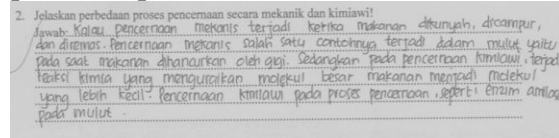 2. Jelaskan perbedaan proses pencernaan secara mekanik dan kimiawi!
Jawab: Kalau pencernaan mekanis terjadi ketika makanan dikunyah, dicampur,
dan diremas. Pencernaan mekanis salah satu contohnya terjadi dalam mulut yaitu
pada saat makanan dihancurkan oleh gigi. Sedangkan pada pencernaan kimiawi, terjadi
reaksi kimia yang menguraikan molekul besar makanan menjadi molekul
yang lebih kecil. Pencernaan kimiawi pada proses pencernaan, seperti enzim amilase
pada mulut.